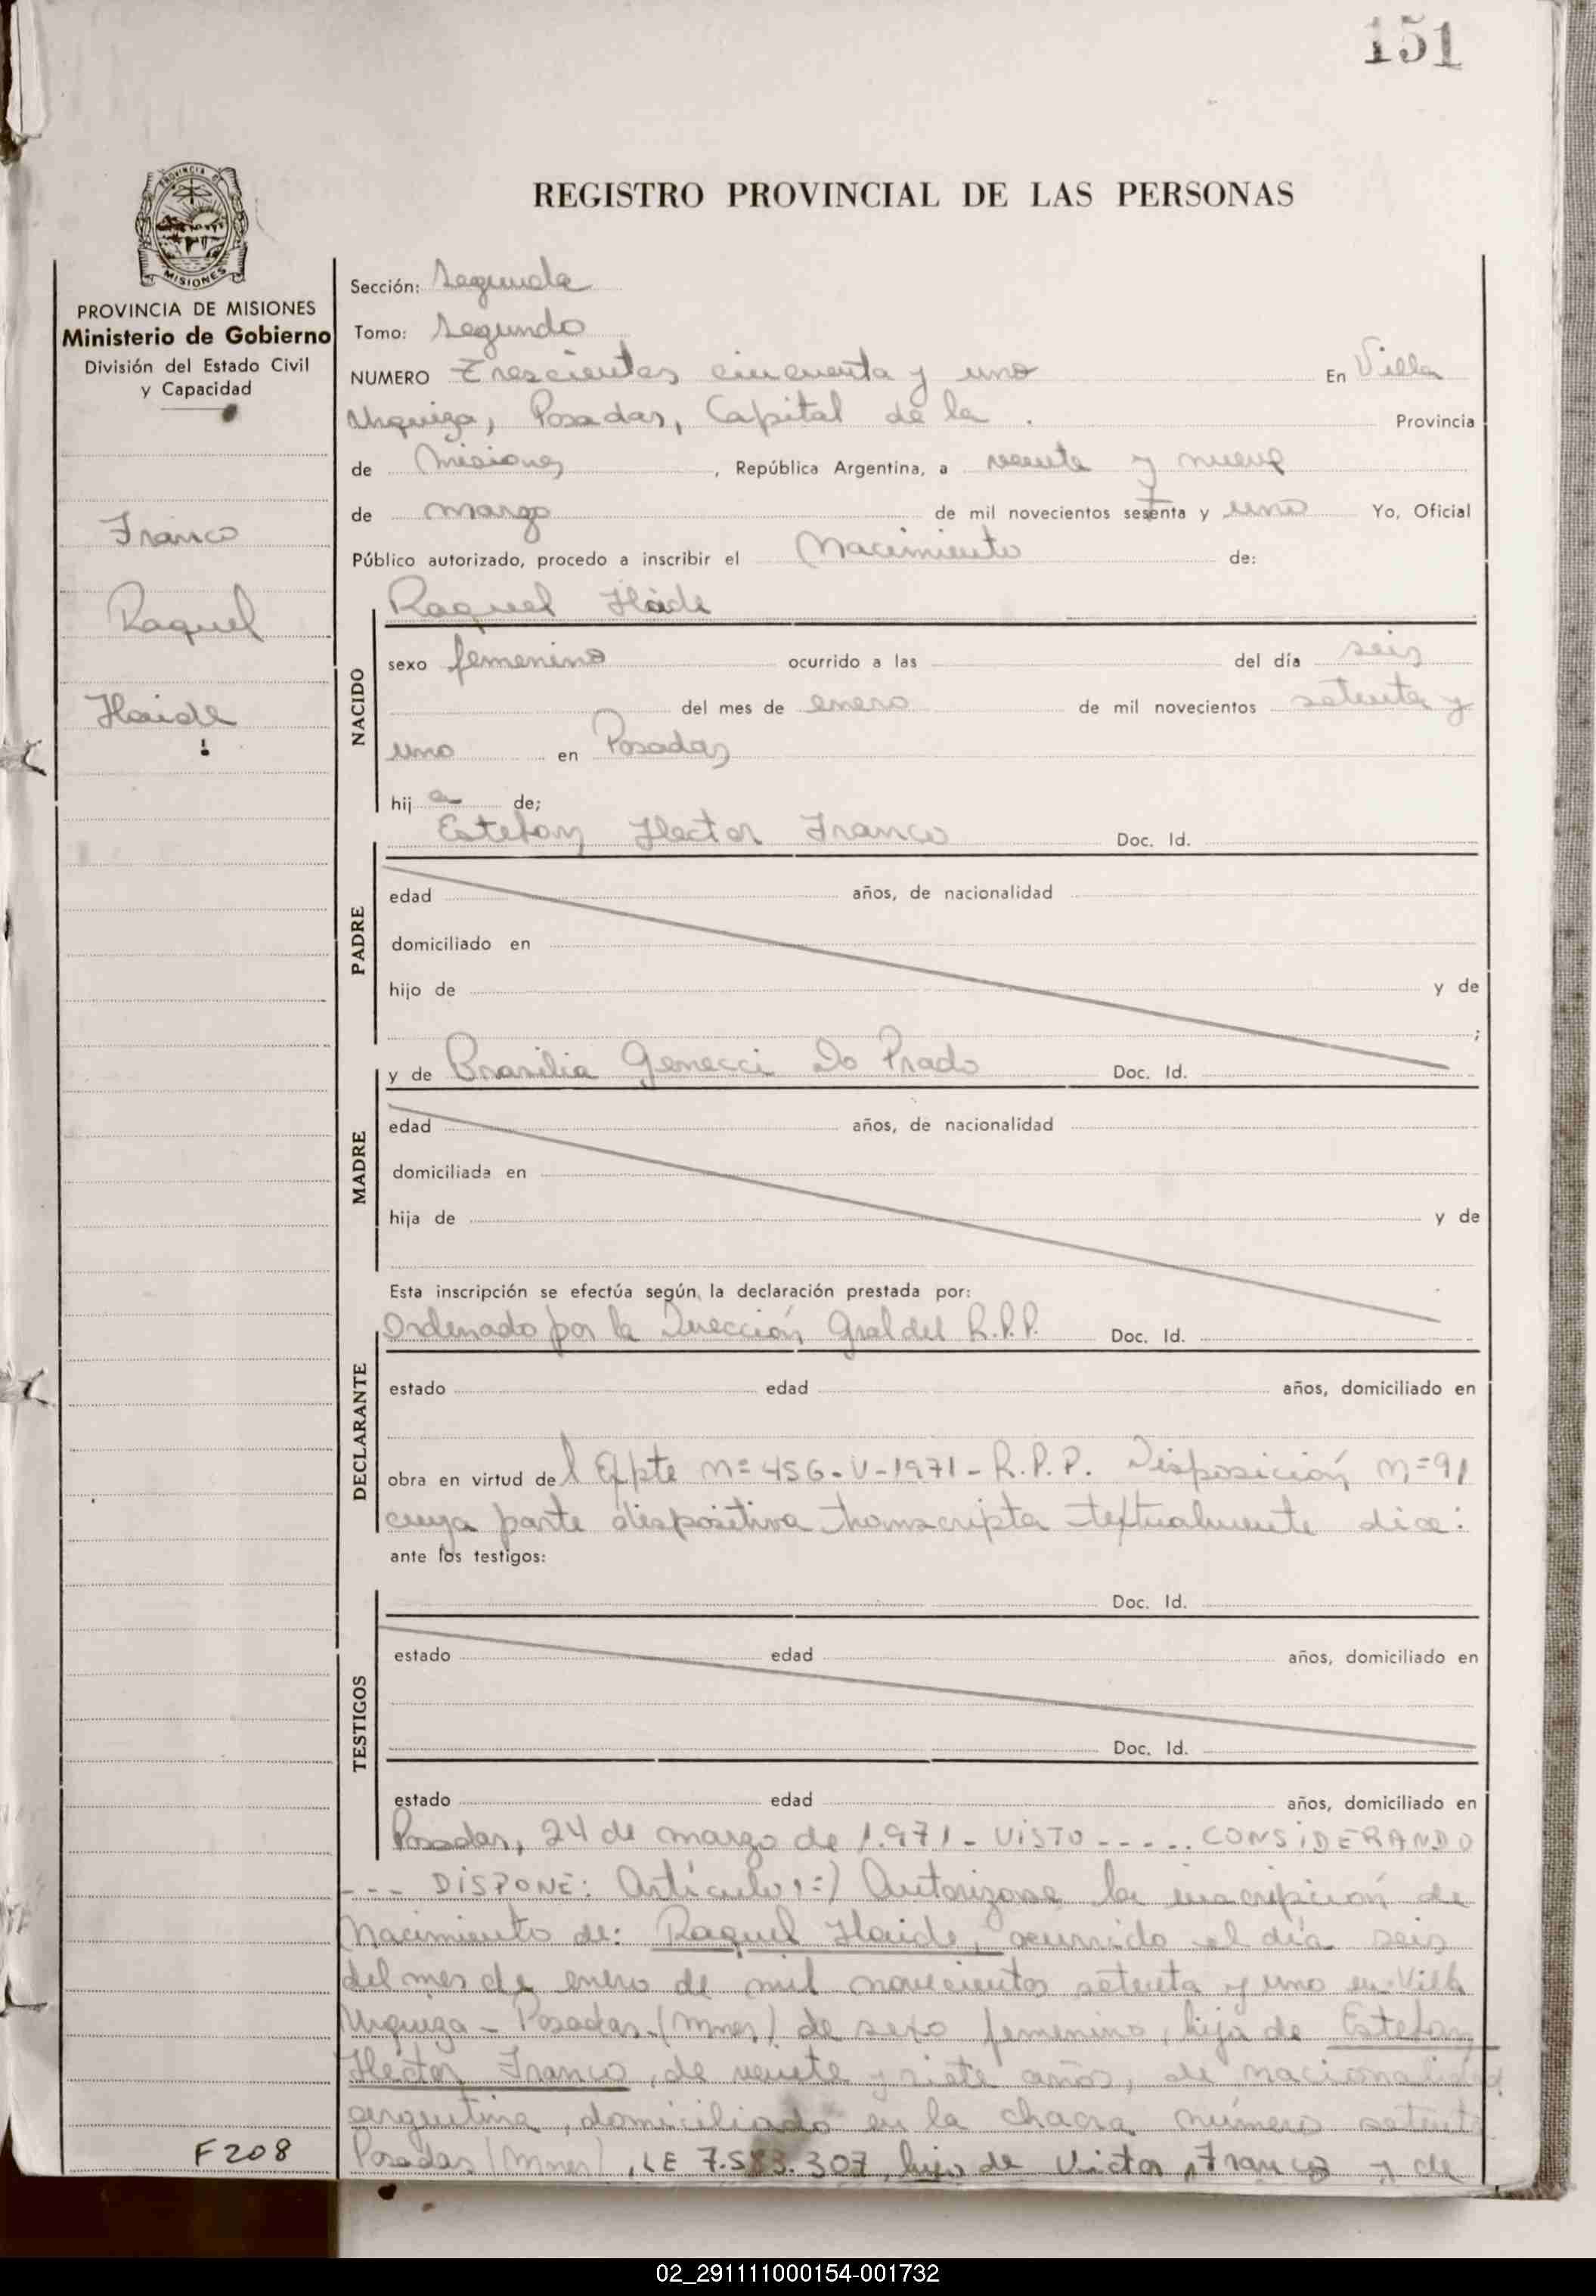 151
PROVINCIA DE
MISIONES
REGISTRO PROVINCIAL DE LAS PERSONAS
PROVINCIA DE MISIONES
Ministerio de Gobierno
División del Estado Civil
y Capacidad
Franco
Raquel
Haide
F208
Sección: Segunda
Tomo: Segundo
NUMERO Trescientos cincuenta y uno En Villa
Urquiza, Posadas, Capital de la Provincia
de Misiones, República Argentina, a veinte y nueve
de marzo de mil novecientos setenta y uno Yo, Oficial
Público autorizado, procedo a inscribir el Nacimiento de:
Raquel Haide
NACIDO
sexo femenino ocurrido a las del día seis
del mes de enero de mil novecientos setenta y
uno en Posadas
hija de;
Estefan Hector Franco Doc. Id.
PADRE
edad años, de nacionalidad
domiciliado en
hijo de y de
;
y de Brasilia Genecci Do Prado Doc. Id.
MADRE
edad años, de nacionalidad
domiciliada en
hija de y de
Esta inscripción se efectúa según la declaración prestada por:
Ordenado por la Dirección Gral del R.P.P. Doc. Id.
DECLARANTE
estado edad años, domiciliado en
obra en virtud del Expte Nº 456-V-1971-R.P.P. Disposición nº 91
cuya parte dispositiva transcripta textualmente dice:
ante los testigos:
Doc. Id.
TESTIGOS
estado edad años, domiciliado en
Doc. Id.
estado edad años, domiciliado en
Posadas, 24 de marzo de 1.971 - VISTO ----- CONSIDERANDO
--- DISPONE: Artículo 1º) Autorizase la inscripción de
Nacimiento de: Raquel Haide, ocurrido el día seis
del mes de enero de mil novecientos setenta y uno en Villa
Urquiza - Posadas (Mnes) de sexo femenino, hija de Estefan
Hector Franco, de veinte y siete años, de nacionalidad
argentina, domiciliado en la chacra número setenta
Posadas (Mnes), LE 7.583.307, hijo de Victor Franco y de
02_291111000154-001732